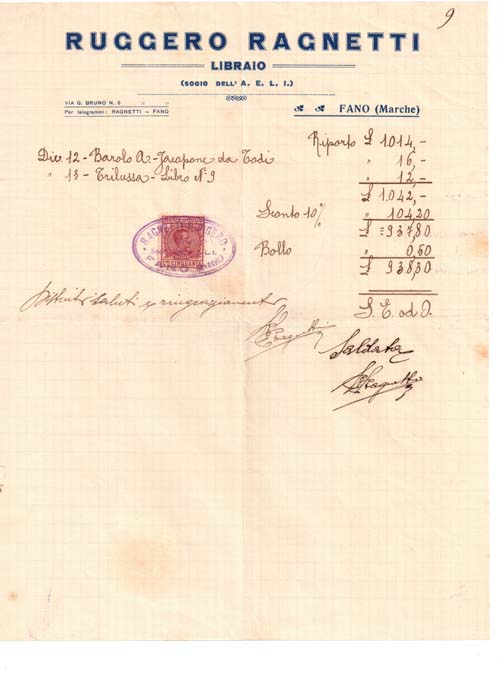 9
RUGGERO RAGNETTI
LIBRAIO
(SOCIO DELL'A. E. L. I.)
VIA G. BRUNO N. 8 " "
Per telegrammi: RAGNETTI - FANO
FANO (Marche)
Riporto £ 1.014,-
Dic 12 - Barolo A - Jacapone da Todi " 16,-
" 13 - Trilussa - Libro N° 9 " 12,-
£ 1.042,-
Sconto 10% " 104,20
£ = 937,80
Bollo " 0,50
£ 938,30
RAGNETTI RUGGERO
FANO
CINQUANTA
Distinti saluti e ringraziamenti
S. E. od O.
R Ragnetti
Saldata
R Ragnetti